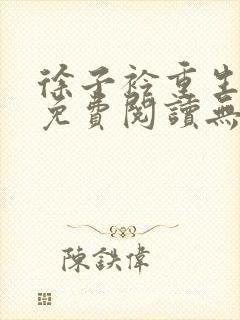 徐子衿重生
免費閱讀無
陳鉄偉